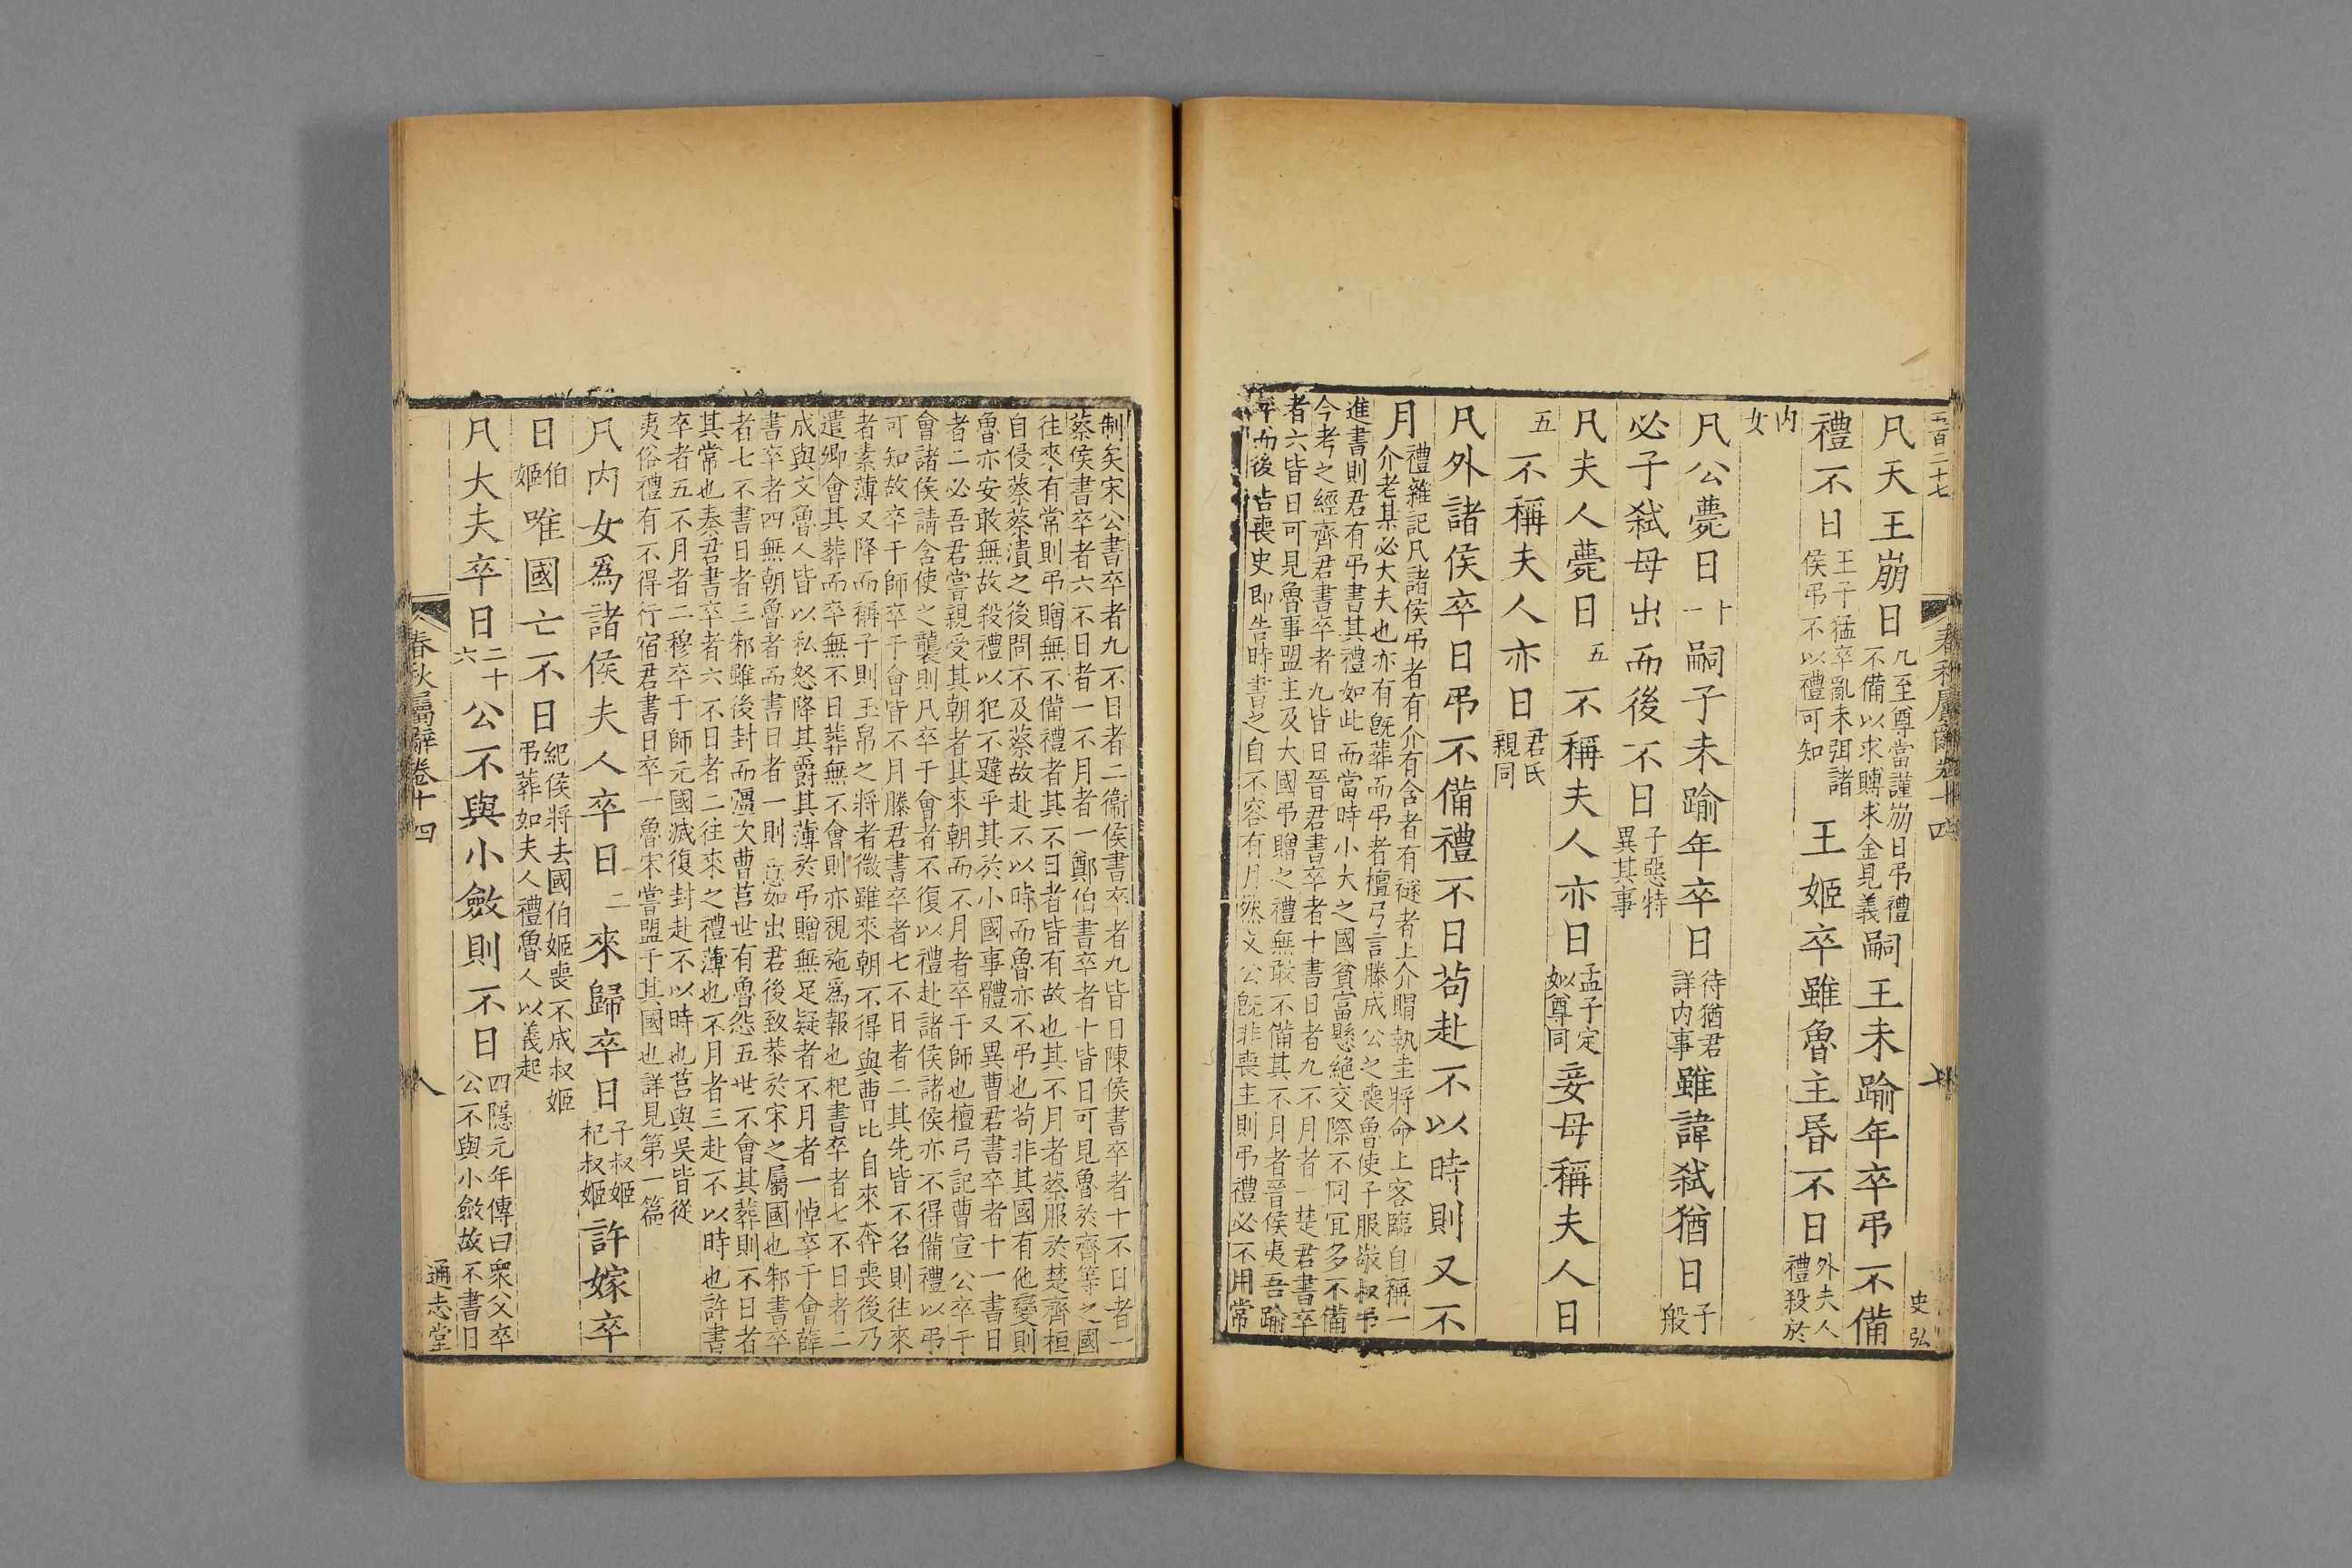 五百二十七
春秋屬辭卷十四
史弘
凡天王崩日凡至尊當謹崩日弔禮不備以求賻求金見義嗣王未踰年卒弔不備
禮不日王子猛卒亂未弭諸侯弔不以禮可知王姬卒雖魯主昏不日外夫人禮殺於
內女
凡公薨日十一嗣子未踰年卒日待猶君詳內事雖諱弒猶日子般
必子弒母出而後不日子惡特異其事
凡夫人薨日五不稱夫人亦日孟子定姒尊同妾母稱夫人日
五不稱夫人亦日君氏親同
凡外諸侯卒日弔不備禮不日苟赴不以時則又不
月禮雜記凡諸侯弔者有介有含者有襚者上介賵執圭將命上客臨自稱一
介老某必大夫也亦有旣葬而弔者檀弓言滕成公之喪魯使子服敬叔弔
進書則君有弔書其禮如此而當時小大之國貧富懸絕交際不同冝多不備
今考之經齊君書卒者九皆日晉君書卒者十書日者九不月者一楚君書卒
者六皆日可見魯事盟主及大國弔贈之禮無敢不備其不月者晉侯夷吾踰
年而後告喪史即告時書之自不容有月然文公旣非喪主則弔禮必不用常
制矣宋公書卒者九不日者二衞侯書卒者九皆日陳侯書卒者十不日者一
蔡侯書卒者六不日者一不月者一鄭伯書卒者十皆日可見魯於齊等之國
往來有常則弔贈無不備禮者其不日者皆有故也其不月者蔡服於楚齊桓
自侵蔡蔡潰之後問不及蔡故赴不以時而魯亦不弔也苟非其國有他變則
魯亦安敢無故殺禮以犯不韙乎其於小國事體又異曹君書卒者十一書日
者二必吾君嘗親受其朝者其來朝而不月者卒于師也檀弓記曹宣公卒于
會諸侯請含使之襲則凡卒于會者不復以禮赴諸侯諸侯亦不得備禮以弔
可知故卒于師卒于會皆不月滕君書卒者七不日者二其先皆不名則往來
者素薄又降而稱子則玉帛之將者微雖來朝不得與曹比自來奔喪後乃
遣卿會其葬而卒無不日葬無不會則亦視施爲報也杞書卒者七不日者二
成與文魯人皆以私怒降其爵其薄於弔贈無足疑者不月者一悼卒于會薛
書卒者四無朝魯者而書日者一則意如出君後致恭於宋之屬國也邾書卒
者七不書日者三邾雖後封而彊次曹莒世有魯怨五世不會其葬則不日者
其常也秦君書卒者六不日者二往來之禮薄也不月者三赴不以時也許書
卒者五不月者二穆卒于師元國滅復封赴不以時也莒與吳皆從
夷俗禮有不得行宿君書日卒一魯宋嘗盟于其國也詳見第一篇
凡內女爲諸侯夫人卒日二來歸卒日子叔姬杞叔姬許嫁卒
日伯姬唯國亡不日紀侯將去國伯姬喪不成叔姬弔葬如夫人禮魯人以義起
凡大夫卒日二十六公不與小斂則不日四隱元年傳曰衆父卒公不與小斂故不書日
春秋屬辭卷十四
八
通志堂